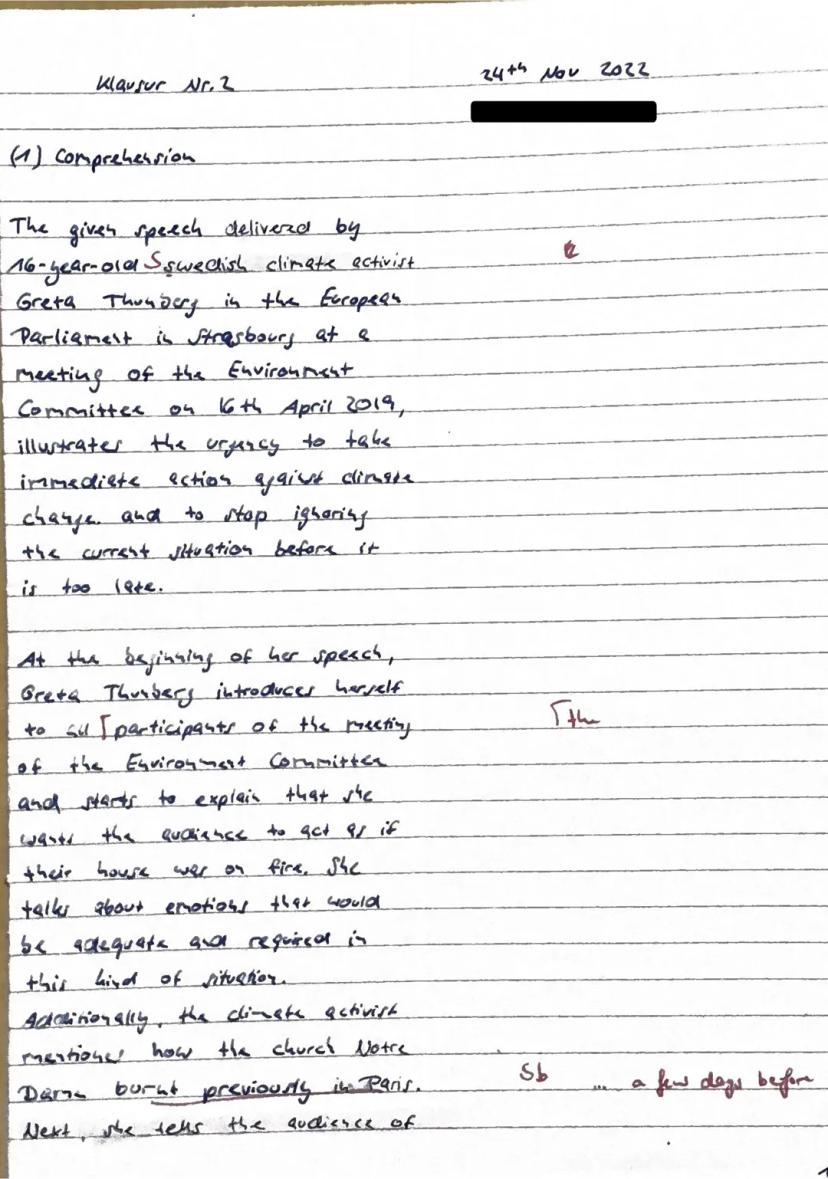 Klausur Nr. 2
24th Nov 2022
(1) Comprehension
The given speech delivered by
16-year-old Sswedish climate activist
Greta Thunberg in the European
Parliament in Strasbourg at a
meeting of the Environment
Committee on 16th April 2019,
illustrates the urgency to take
immediate action against climate
change and to stop ignoring
the current situation before it
is too late.
At the beginning of her speech,
Greta Thunberg introduces herself
to all ⌈participants of the meeting ⌈the
of the Environment Committee
and starts to explain that she
wants the audience to act as if
their house was on fire. She
talks about emotions that would
be adequate and required in
this kind of situation.
Additionally, the climate activist
mentiones how the church Notre
Dame burnt previously in Paris. Sb ... a few days before
Next, she tells the audience of
1